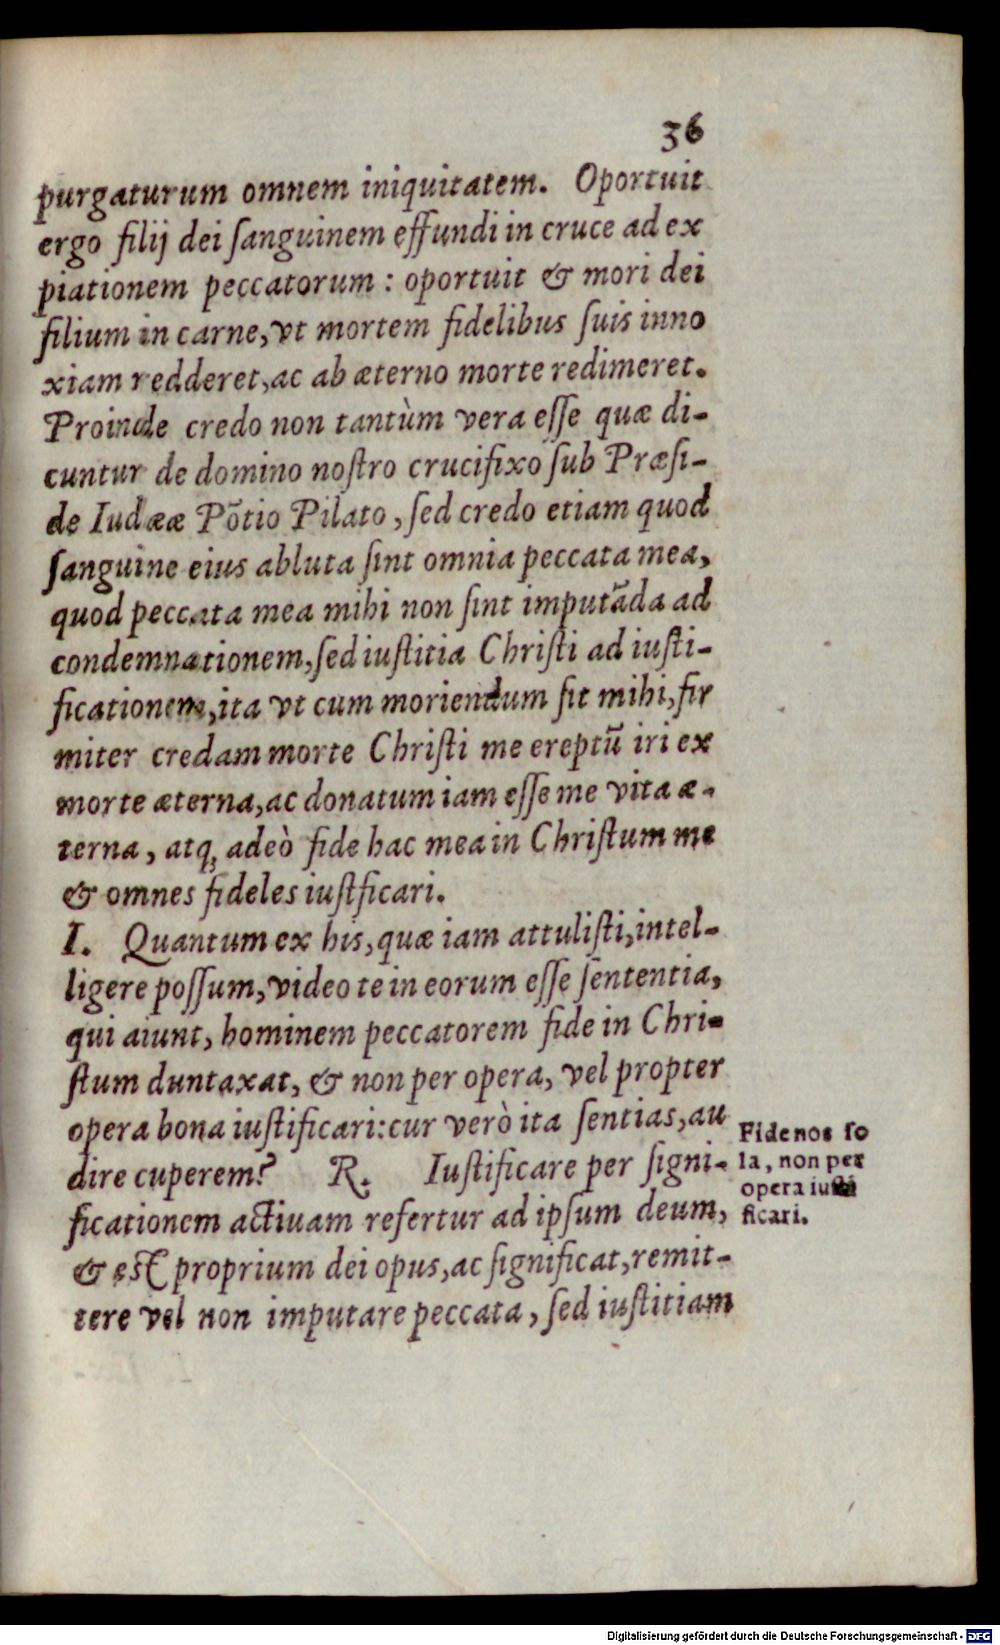 36
purgaturum omnem iniquitatem. Oportuit
ergo filij dei ſanguinem effundi in cruce ad ex
piationem peccatorum : oportuit & mori dei
filium in carne, vt mortem fidelibus ſuis inno
xiam redderet, ac ab æterno morte redimeret.
Proinde credo non tantùm vera eſſe quæ di-
cuntur de domino noſtro crucifixo ſub Præſi-
de Iudææ Põtio Pilato, ſed credo etiam quod
ſanguine eius abluta ſint omnia peccata mea,
quod peccata mea mihi non ſint imputãda ad
condemnationem, ſed iuſtitia Chriſti ad iuſti-
ficationem, ita vt cum moriendum ſit mihi, fir
miter credam morte Chriſti me ereptũ iri ex
morte æterna, ac donatum iam eſſe me vita æ-
terna, atq; adeò fide hac mea in Chriſtum me
& omnes fideles iuſtficari.
I. Quantum ex his, quæ iam attuliſti, intel-
ligere poſſum, video te in eorum eſſe ſententia,
qui aiunt, hominem peccatorem fide in Chri-
ſtum duntaxat, & non per opera, vel propter
opera bona iuſtificari: cur verò ita ſentias, au
dire cuperem? R. Iuſtificare per ſigni-
ficationem actiuam refertur ad ipſum deum,
& eſt proprium dei opus, ac ſignificat, remit-
tere vel non imputare peccata, ſed iuſtitiam
Fide nos ſo
la, non per
opera iuſti
ficari.
Digitalisierung gefördert durch die Deutsche Forschungsgemeinschaft - DFG